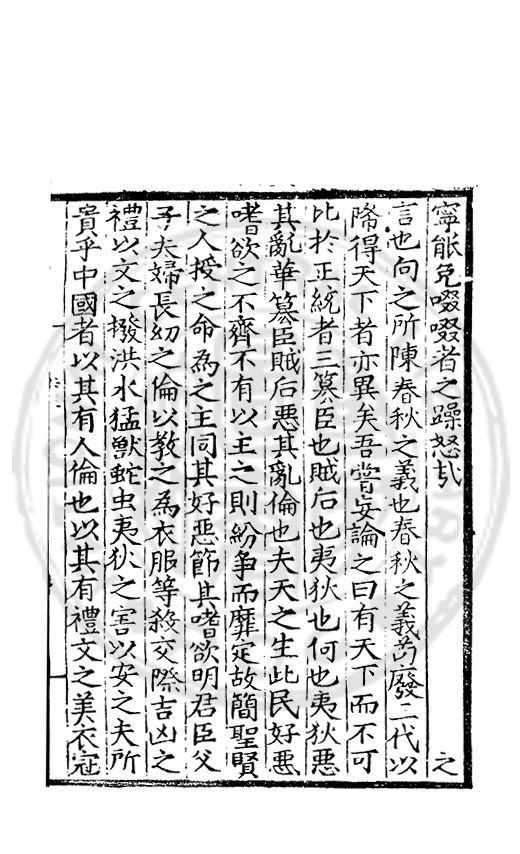 寧能免啜啜者之躁怒哉　之
言也向之所陳春秋之義也春秋之義茍廢二代以
降得天下者亦異矣吾嘗妄論之曰有天下而不可
比於正統者三篡臣也賊后也夷狄也何也夷狄惡
其亂華篡臣賊后惡其亂倫也夫天之生此民好惡
嗜欲之不齊不有以主之則紛争而靡定故簡聖賢
之人授之命為之主同其好惡節其嗜欲明君臣父
子夫婦長幼之倫以教之為衣服等殺交際吉凶之
禮以文之撥洪水猛獸蛇虫夷狄之害以安之夫所
貴乎中國者以其有人倫也以其有禮文之美衣冠